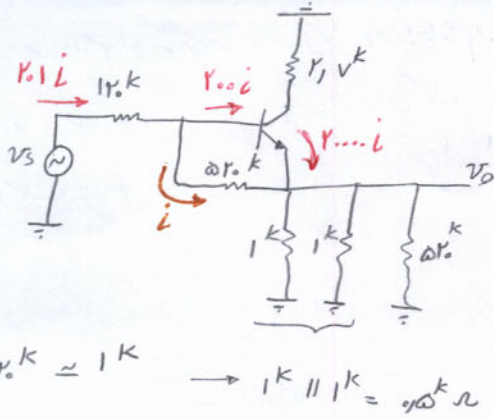 ۲,۷ᵏ
۲۰۱i
۱۲۰ᵏ
۲۰۰i
۲۰۰۰۰i
vₛ
۵۲۰ᵏ
v₀
i
۱ᵏ
۱ᵏ
۵۲۰ᵏ
۲۰ᵏ ≃ ۱ᵏ → ۱ᵏ || ۱ᵏ = ۰٫۵ᵏ Ω